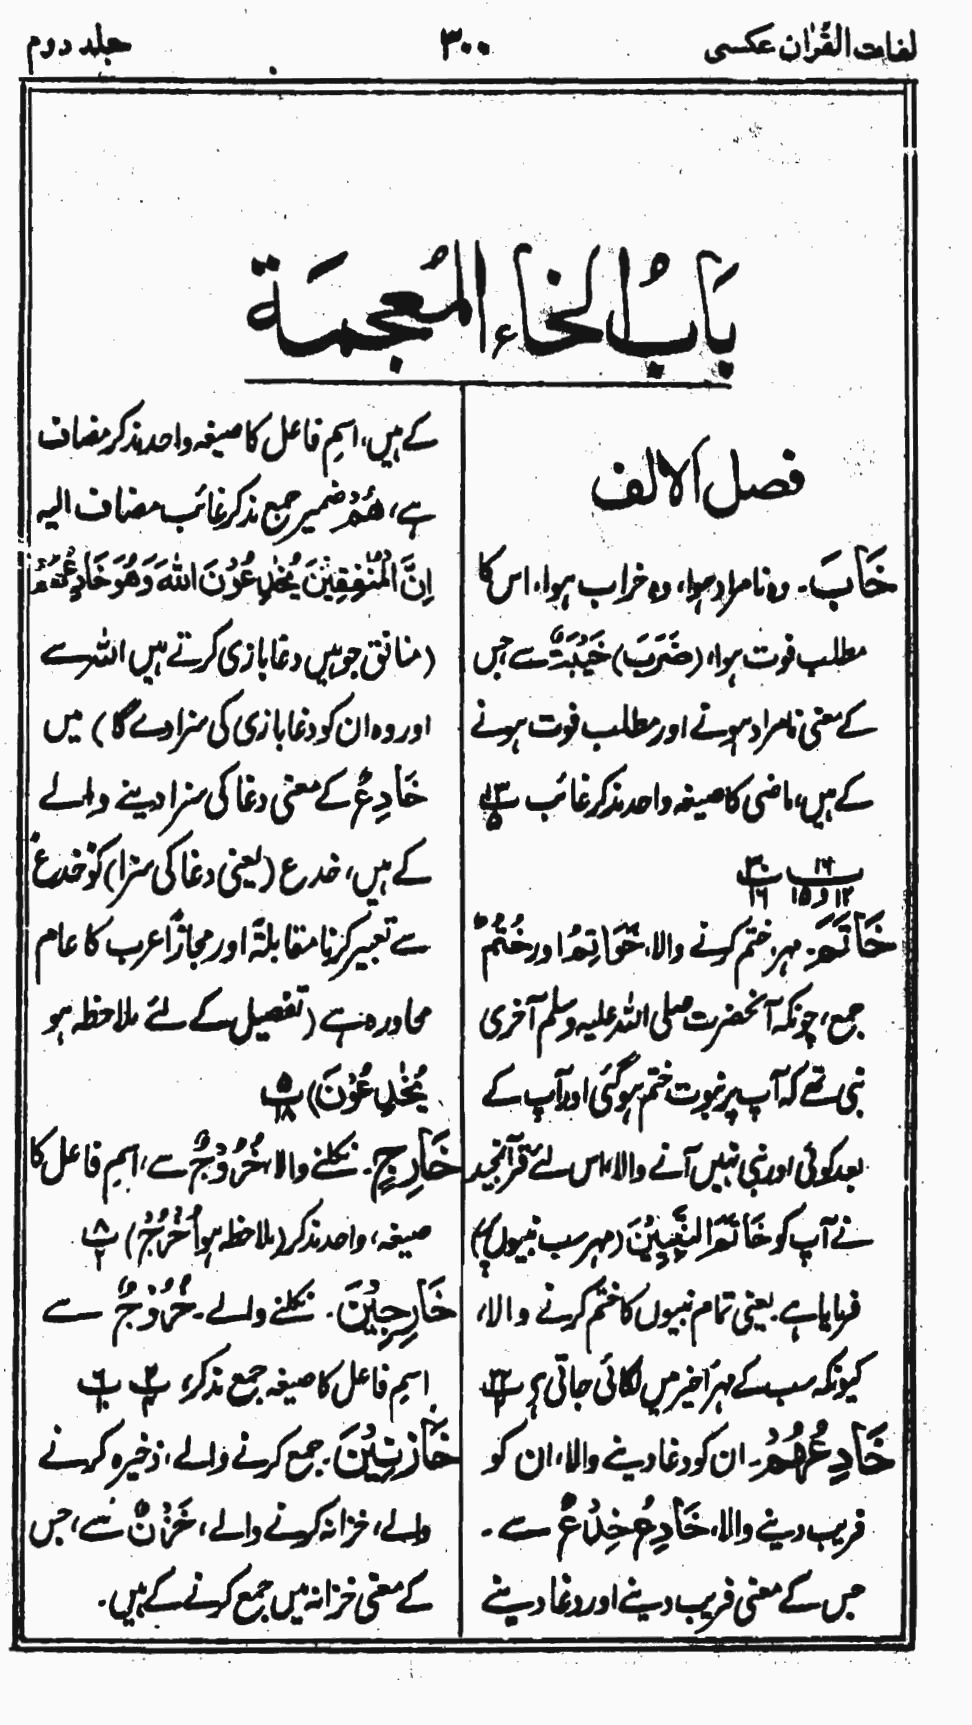 لغات القرآن عکسی
۳۰۰
جلد دوم
بَابُ الخَاءِ المُعجمَة
فصل الالف
خَابَ۔ وہ نامراد ہوا، وہ خراب ہوا، اس کا
مطلب فوت ہوا، (ضَرَبَ) خَیْبَۃٌ سے جس
کے معنی نامراد ہونے اور مطلب فوت ہونے
کے ہیں، ماضی کا صیغہ واحد مذکر غائب پ۱۳ ۵
پ۱۶ ۱۲ و ۱۵ پ۳۰ ۱۶
خَاتَمَ۔ مہر، ختم کرنے والا، خَوَاتِمُ اور خُتُمٌ
جمع، چونکہ آنحضرت صلی اللہ علیہ وسلم آخری
نبی تھے کہ آپ پر نبوت ختم ہو گئی اور آپ کے
بعد کوئی اور نبی نہیں آنے والا، اس لئے قرآن مجید
نے آپ کو خَاتَمَ النَّبِیّیْنَ (مہر سب نبیوں پر)
فرمایا ہے۔ یعنی تمام نبیوں کا ختم کرنے والا،
کیونکہ سب کے مہر اخیر میں لگائی جاتی ہے پ۲۲
خَادِعُهُمْ۔ ان کو دغا دینے والا، ان کو
فریب دینے والا، خَادِعٌ خِدَاعٌ سے۔
جس کے معنی فریب دینے اور دغا دینے
کے ہیں، اسم فاعل کا صیغہ واحد مذکر مضاف
ہے، هُمْ ضمیر جمع مذکر غائب مضاف الیہ
اِنَّ الْمُنٰفِقِیْنَ یُخٰدِعُوْنَ اللّٰهَ وَهُوَ خَادِعُهُمْ
(منافق جو ہیں دغا بازی کرتے ہیں اللہ سے
اور وہ ان کو دغا بازی کی سزا دے گا) میں
خَادِعٌ کے معنی دغا کی سزا دینے والے
کے ہیں، خدع (یعنی دغا کی سزا) کو خدعٌ
سے تعبیر کرنا مقابلۃً اور مجازًا عرب کا عام
محاورہ ہے (تفصیل کے لئے ملاحظہ ہو
یُخٰدِعُوْنَ) پ۵ ۱۸
خَارِجٍ۔ نکلنے والا، خُرُوْجٌ سے، اسم فاعل کا
صیغہ، واحد مذکر (ملاحظہ ہو اُخْرُجْ) پ۸ ۲
خَارِجِیْنَ۔ نکلنے والے۔ خُرُوْجٌ سے
اسم فاعل کا صیغہ جمع مذکر، پ۲ پ۶
خَازِنِیْنَ۔ جمع کرنے والے، ذخیرہ کرنے
والے، خزانہ کرنے والے، خَزْنٌ سے، جس
کے معنی خزانہ میں جمع کرنے کے ہیں۔